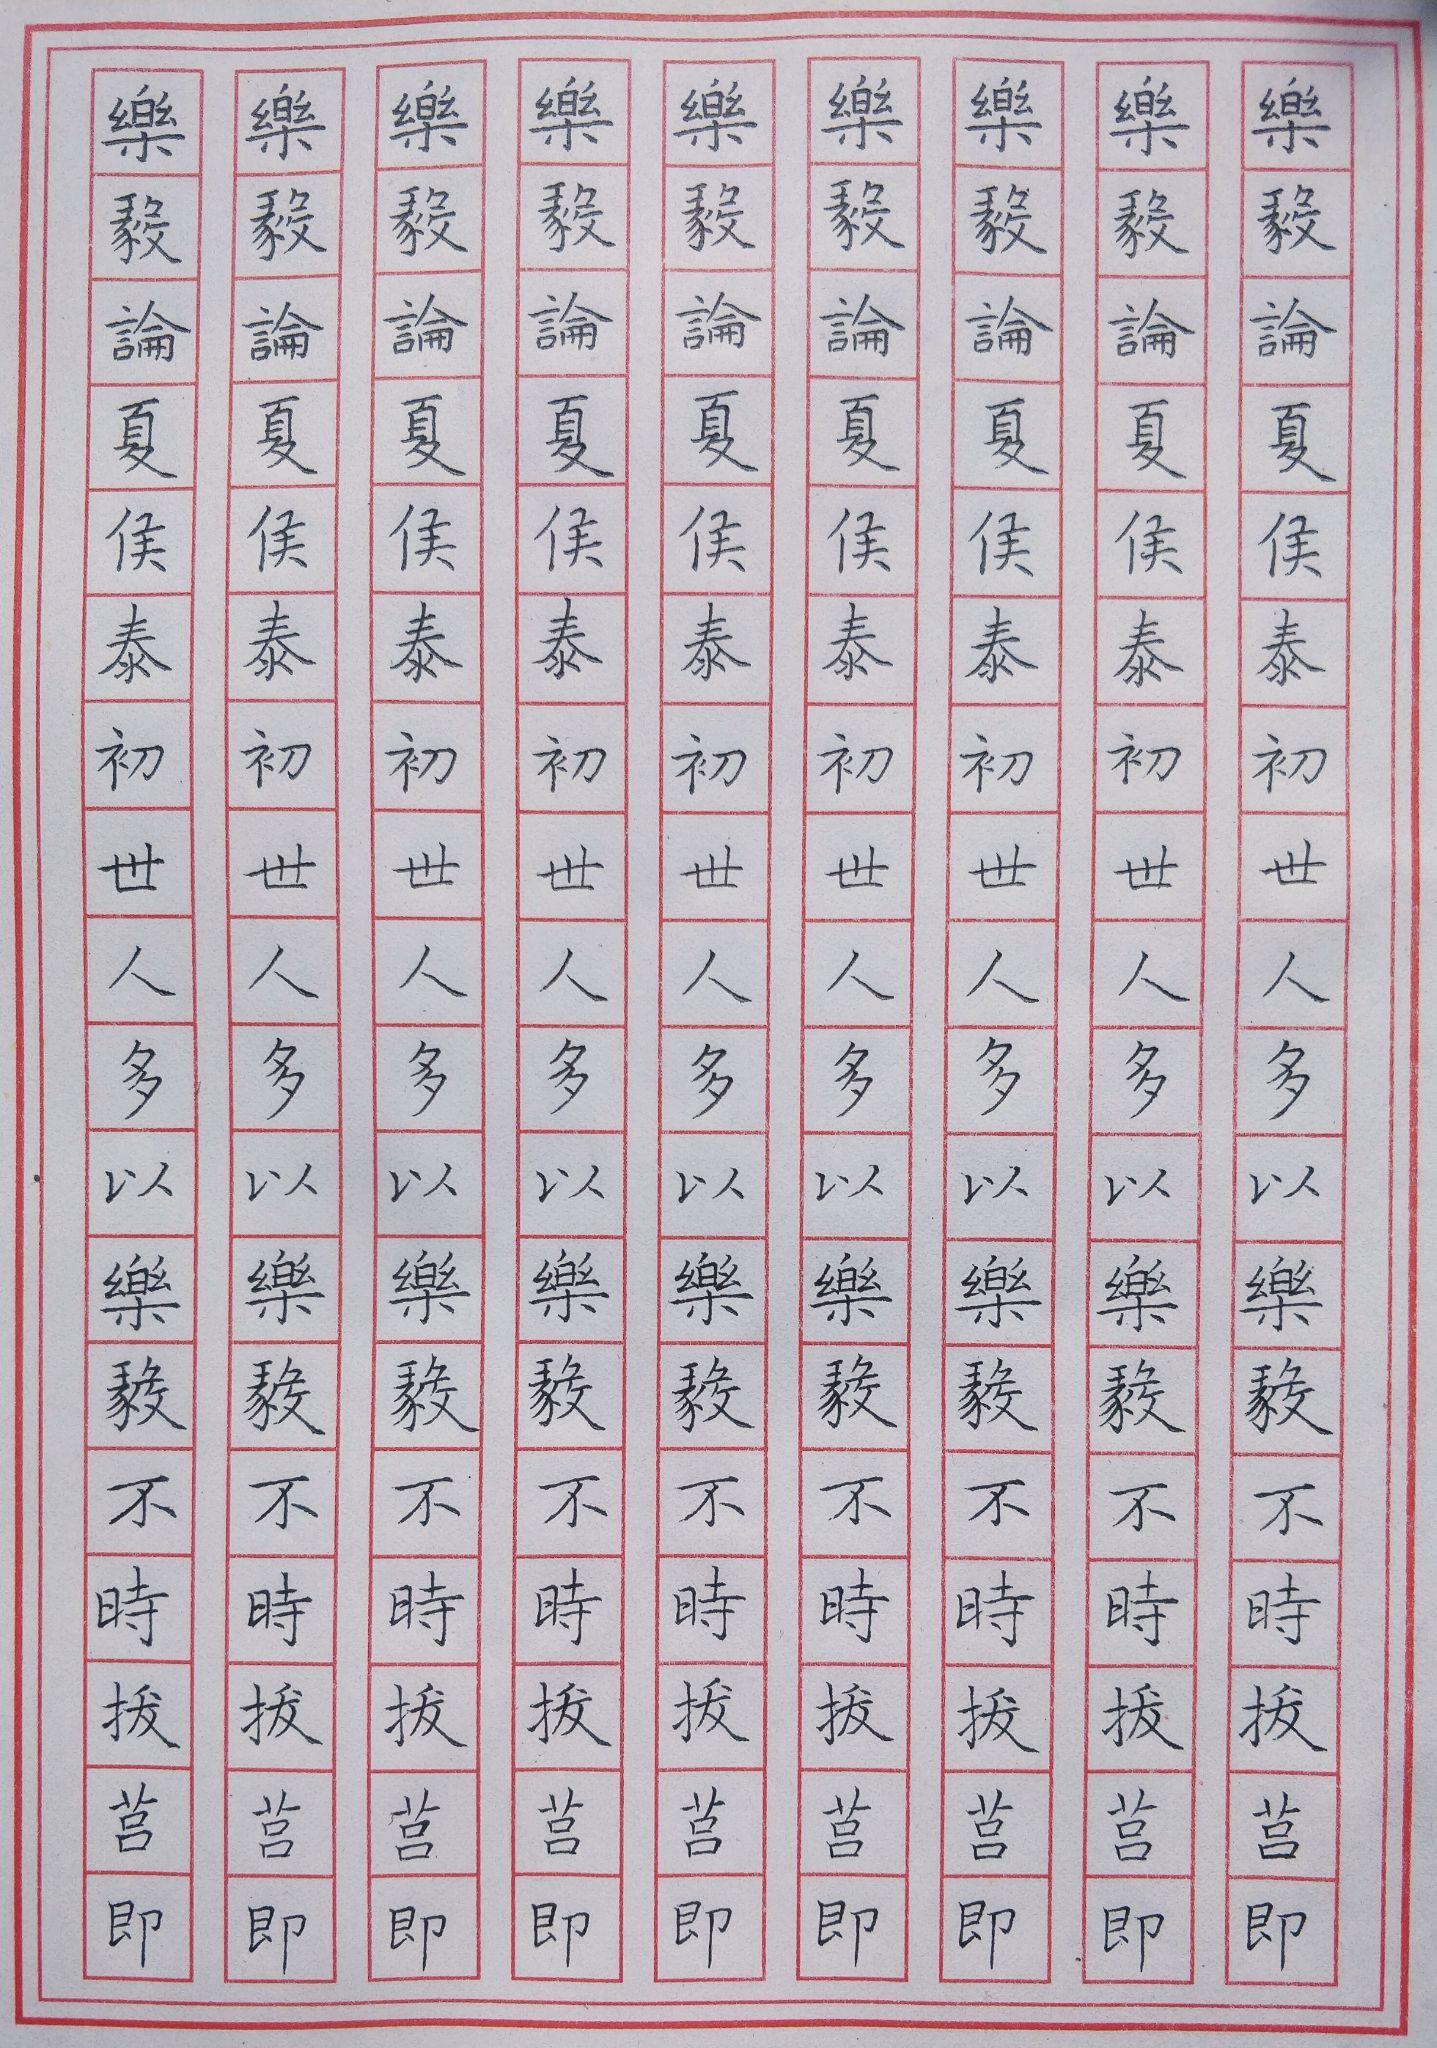 樂毅論夏侯泰初世人多以樂毅不時拔莒即
樂毅論夏侯泰初世人多以樂毅不時拔莒即
樂毅論夏侯泰初世人多以樂毅不時拔莒即
樂毅論夏侯泰初世人多以樂毅不時拔莒即
樂毅論夏侯泰初世人多以樂毅不時拔莒即
樂毅論夏侯泰初世人多以樂毅不時拔莒即
樂毅論夏侯泰初世人多以樂毅不時拔莒即
樂毅論夏侯泰初世人多以樂毅不時拔莒即
樂毅論夏侯泰初世人多以樂毅不時拔莒即